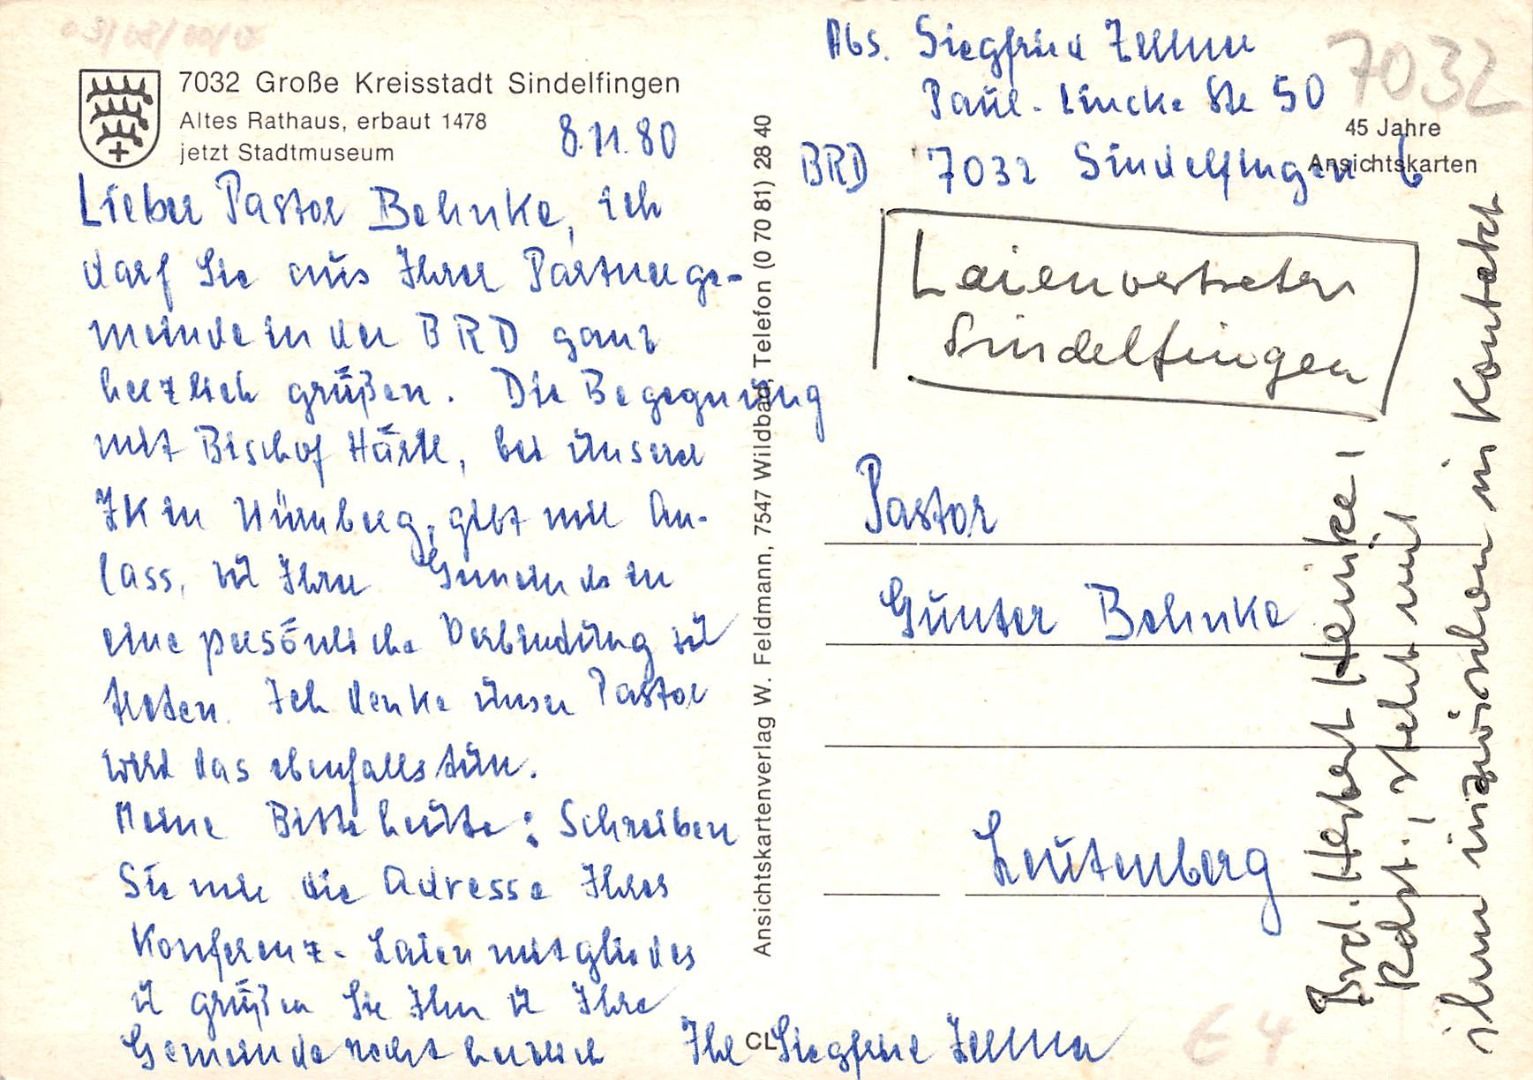 03/08/00/0
7032 Große Kreisstadt Sindelfingen
Altes Rathaus, erbaut 1478
jetzt Stadtmuseum
8.11.80
Lieber Pastor Behnke, ich
darf Sie aus Ihrer Partnerge-
meinde in der BRD ganz
herzlich grüßen. Die Begegnung
mit Bischof Härtl, bei unserer
JK in Nürnberg, gibt mir An-
lass, zu Ihrer Gemeinde in
eine persönliche Verbindung zu
treten. Ich denke unser Pastor
wird das ebenfalls tun.
Meine Bitte heute: Schreiben
Sie mir die Adresse Ihres
Konferenz-Laienmitgliedes
u grüßen Sie Ihn u Ihre
Gemeinde recht herzlich Ihr Siegfried
CL
Ansichtskartenverlag W. Feldmann, 7547 Wildbad, Telefon (0 70 81) 28 40
Abs. Siegfried
Paul-Lincke Str 50
BRD 7032 Sindelfingen 6
7032
45 Jahre
Ansichtskarten
Laienvertreter
Sindelfingen
Pastor
Günter Behnke
Leutenberg
Brd. Herbert Heinke,
Rdst., steht mit
ihm inzwischen in Kontakt
E4